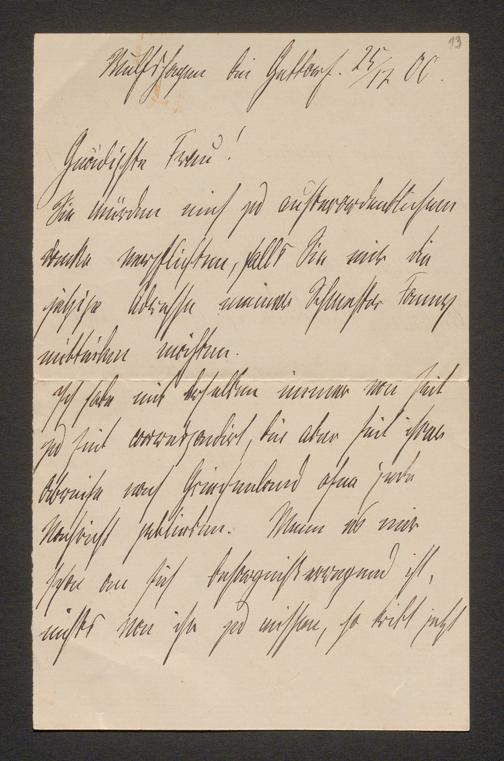 13
Wulfshagen bei Gettorf. 25/12 00.
Gnädigste Frau!
Sie würden mich zu außerordentlichem
Danke verpflichten, falls Sie mir die
jetzige Adresse meiner Schwester Fanny
mitteilen möchten.
Ich habe mit derselben immer von Zeit
zu Zeit correspondirt, bin aber seit ihrer
Abreise nach Griechenland ohne jede
Nachricht geblieben. Wenn es mir
schon an sich besorgnißerregend ist,
nichts von ihr zu wissen, so tritt jetzt